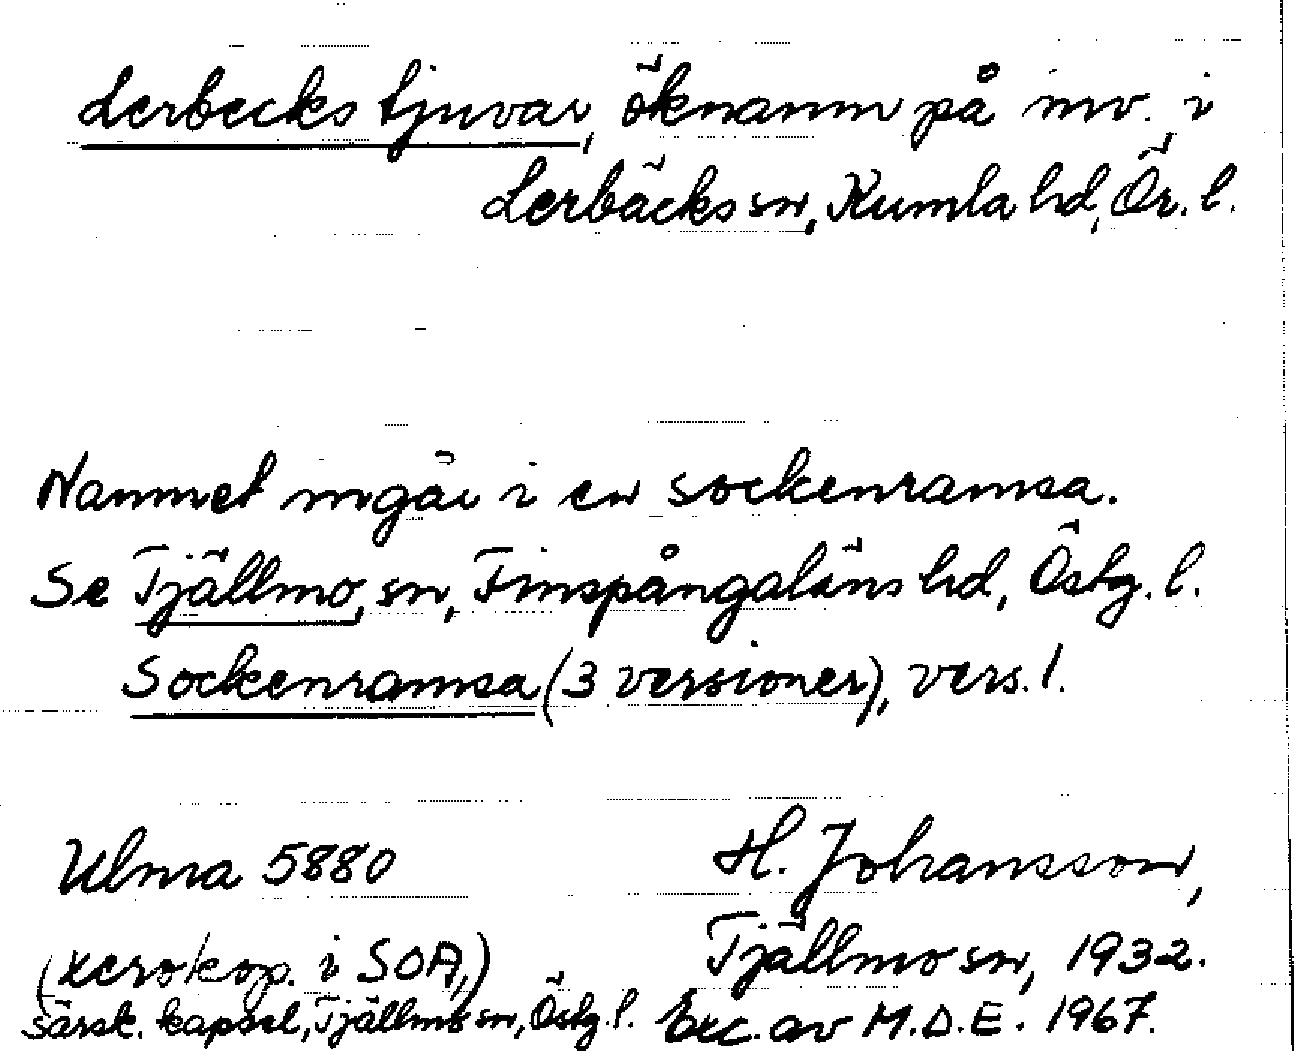 Lerbecks tjuvar, öknamn på inv. i
Lerbäcks sn, Kumla hd, Ör. l.
Namnet ingår i en sockenramsa.
Se Tjällmo, sn, Finspångaläns hd, Östg. l.
Sockenramsa (3 versioner), vers. 1.
Ulma 5880
(xerokop. i SOA,)
särsk. kapsel, Tjällmo sn, Östg. l.
H. Johansson,
Tjällmo sn, 1932.
Exc. av M.D.E. 1967.